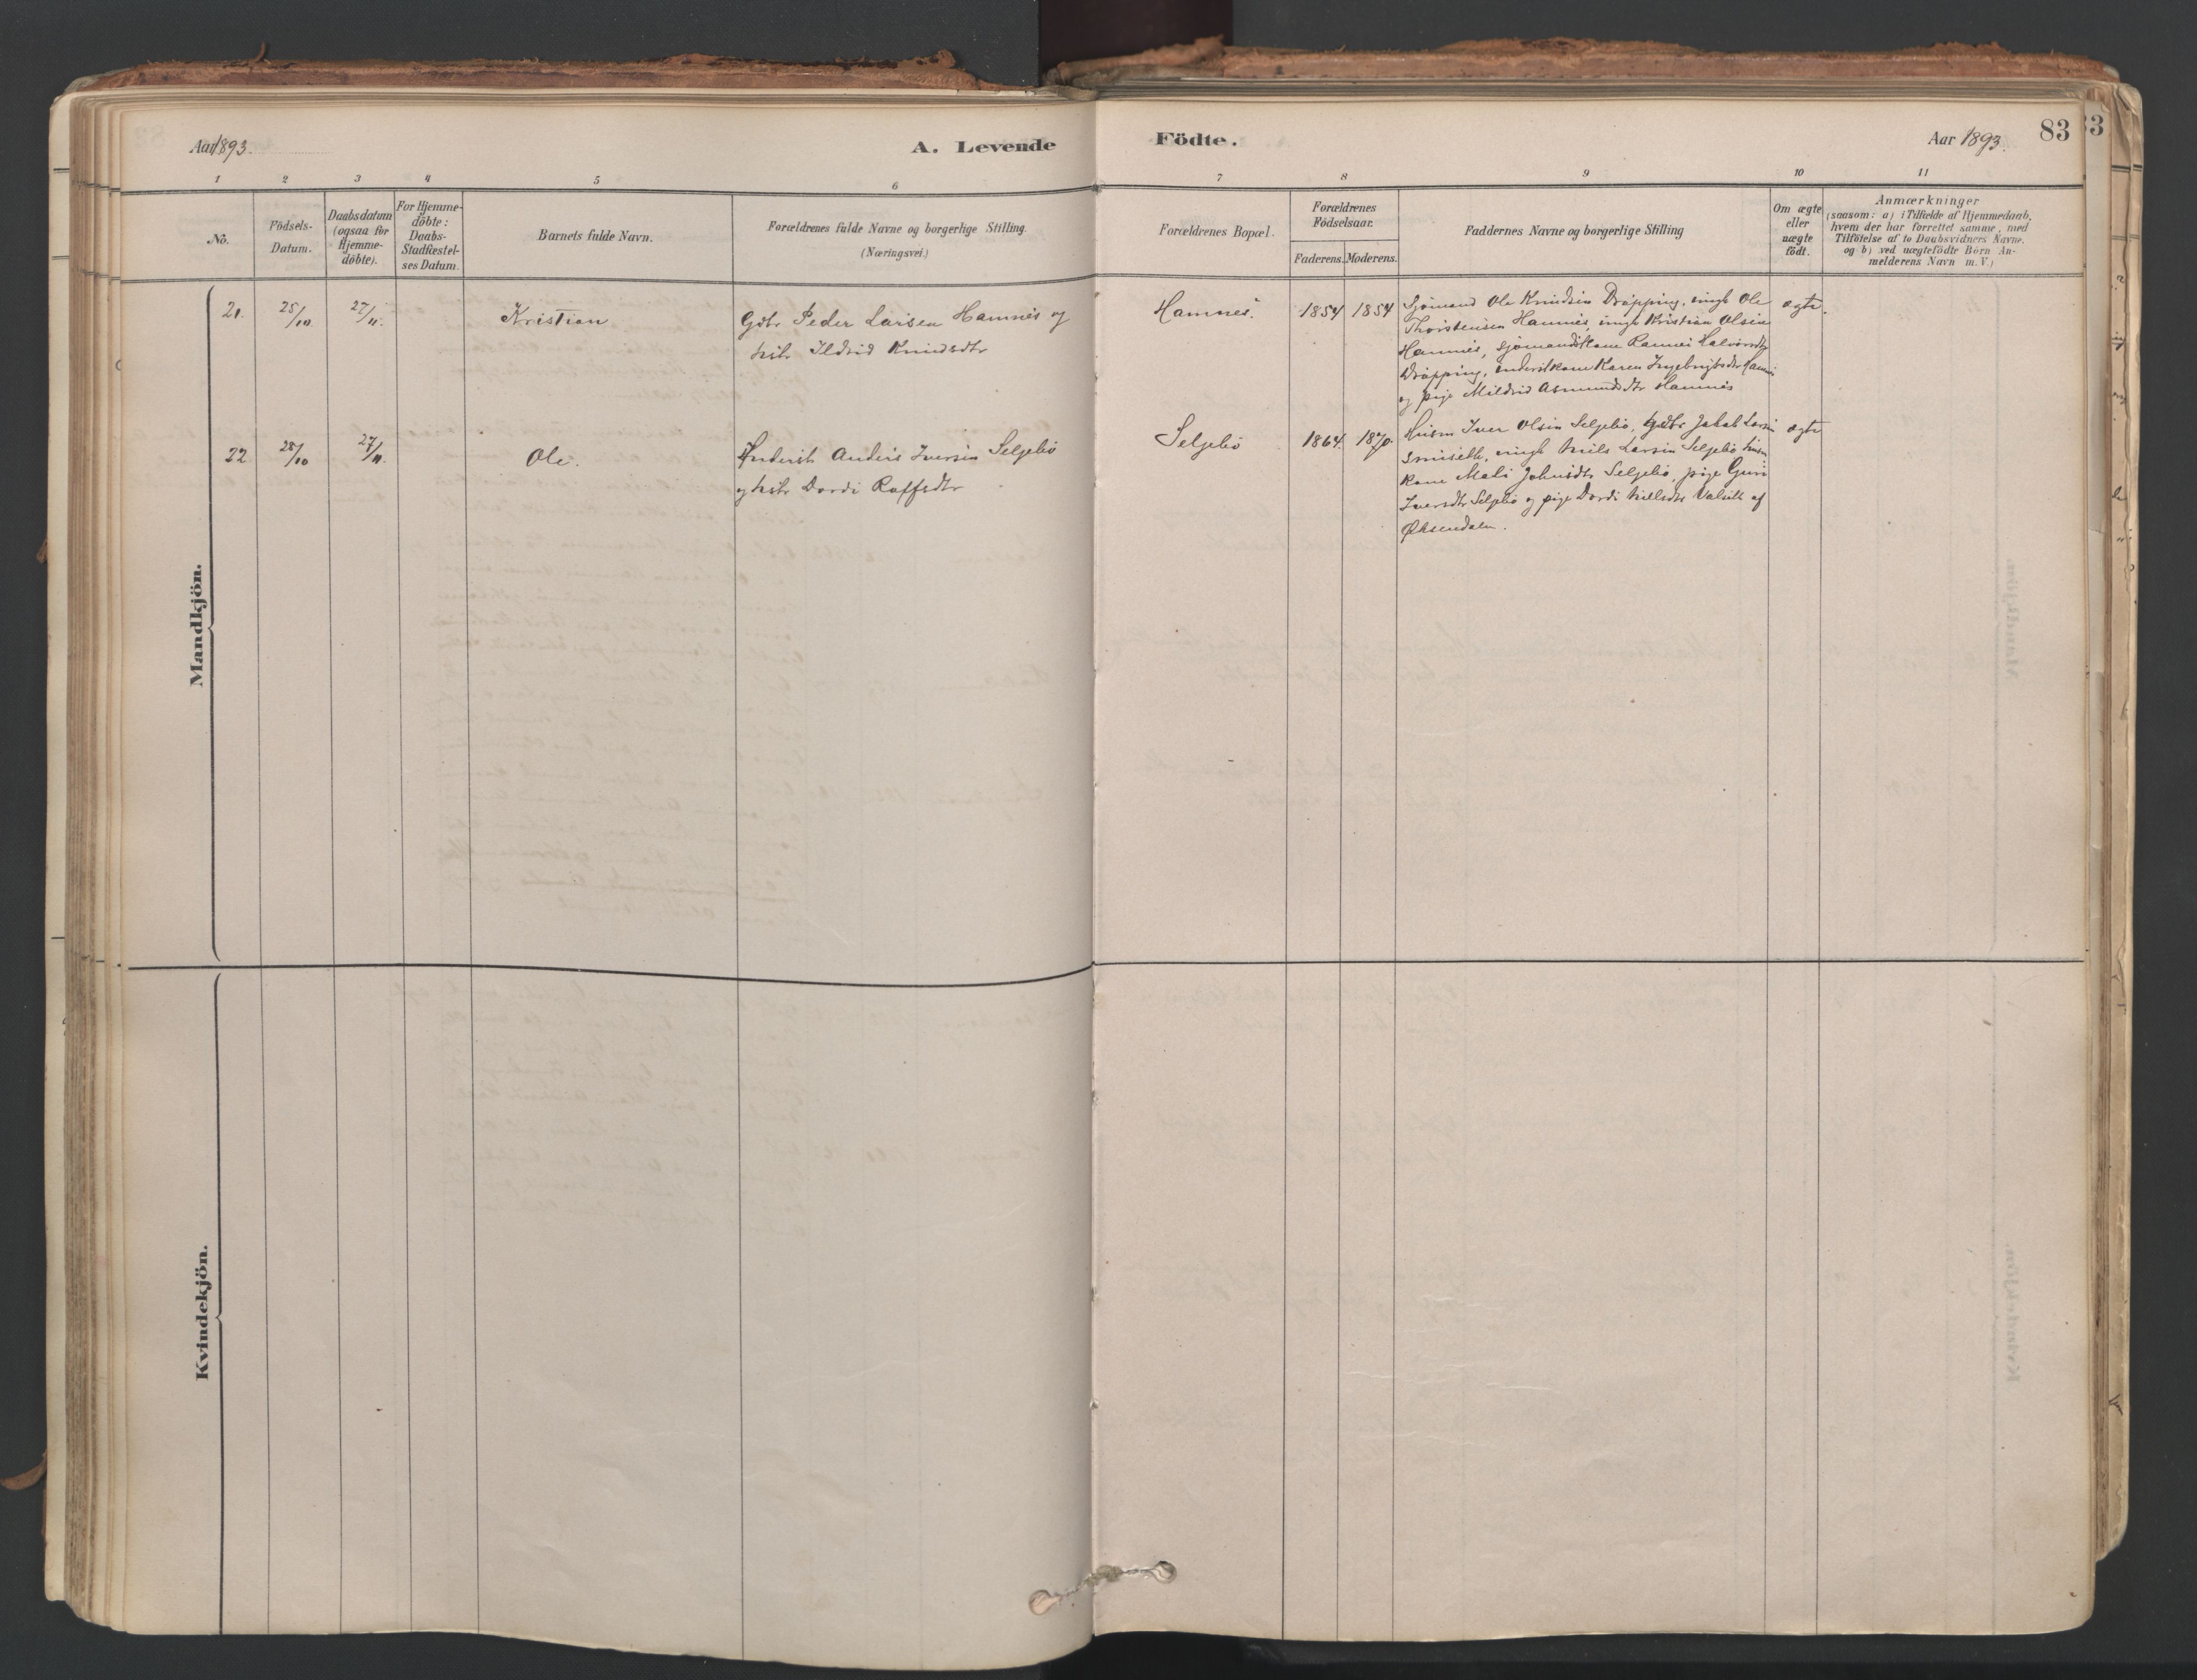 Aar 1893.
A. Levende
Födte.
Aar 1893.
83
1 2 3 4 5 6
7 8 9 10 11
No.
Födsels-
Datum.
Daabsdatum
(ogsaa for
Hjemme-
döbte).
For Hjemme-
döbte:
Daabs-
Stadfæstel-
ses Datum.
Barnets fulde Navn.
Forældrenes fulde Navne og borgerlige Stilling.
(Næringsvei.)
Forældrenes Bopæl.
Forældrenes
Födselsaar.
Faderens. Moderens.
Faddernes Navne og borgerlige Stilling
Om ægte
eller
uægte
födt.
Anmærkninger
(saasom: a) i Tilfælde af Hjemmedaab,
hvem der har forrettet samme, med
Tilföielse af to Daabsvidners Navne.
og b) ved uægtefödte Börn An-
melderens Navn m. V.)
Mandkjön.
21. 25/10 27/11. Kristian
Gdbr Peder Larsen Hamnes og
hstr Ildrid Knudsdtr
Hamnes. 1854 1854
Sjömand Ole Knudsen Dröpping, ungk Ole
Thorstensen Hamnes, ungk Kristian Olsen
Hamnes, sjömandskone Halvorsdtr
Dröpping, kone Karen Ingebrigtsdtr Hamnes
og pige Mildrid Asmundsdtr Hamnes
ægte.
22. 28/10 27/11. Ole.
Anders Iversen Seljebö
og hstr Dordi Roffsdtr
Seljebö 1864. 1870.
Husm Iver Olsen Seljebö, Gdbr Jakob Larsen
ungk Nils Larsen Seljebö
kone Mali Johnsdtr Seljebö, pige Guri
Iversdtr Seljebö og pige Dordi af
Öksendalen.
ægte
Kvindekjön.